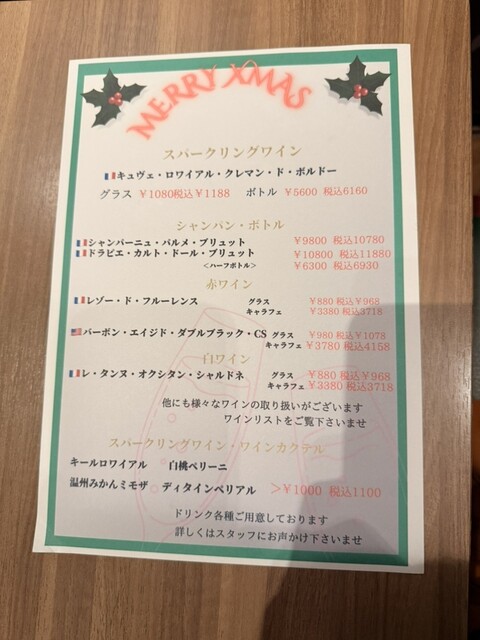 MERRY XMAS
スパークリングワイン
キュヴェ・ロワイアル・クレマン・ド・ボルドー
グラス ￥1080税込￥1188 ボトル ￥5600 税込6160
シャンパン・ボトル
シャンパーニュ・パルメ・ブリュット ￥9800 税込10780
ドラピエ・カルト・ドール・ブリュット ￥10800 税込11880
<ハーフボトル> ￥6300 税込6930
赤ワイン
レゾー・ド・フルーレンス グラス ￥880 税込￥968
キャラフェ ￥3380 税込3718
バーボン・エイジド・ダブルブラック・CS グラス ￥980 税込￥1078
キャラフェ ￥3780 税込4158
白ワイン
レ・タンヌ・オクシタン・シャルドネ グラス ￥880 税込￥968
キャラフェ ￥3380 税込3718
他にも様々なワインの取り扱いがございます
ワインリストをご覧下さいませ
スパークリングワイン・ワインカクテル
キールロワイアル 白桃ベリーニ
温州みかんミモザ ディタインペリアル >￥1000 税込1100
ドリンク各種ご用意しております
詳しくはスタッフにお声かけ下さいませ